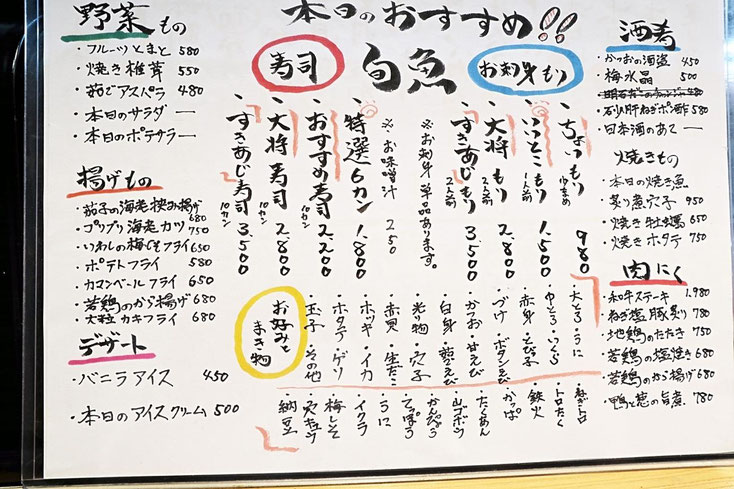 本日のおすすめ!!
野菜もの
・フルーツとまと 580
・焼き椎茸 550
・茹でアスパラ 480
・本日のサラダ ―
・本日のポテサラ ―
揚げもの
・茄子の海老挟み揚げ 680
・プリプリ海老カツ 750
・いわしの梅しそフライ 650
・ポテトフライ 580
・カマンベールフライ 650
・若鶏のから揚げ 680
・大粒カキフライ 680
デザート
・バニラアイス 450
・本日のアイスクリーム 500
寿司
旬魚
お刺身もり
・ちょいもり 980
・いいとこもり 1人前 1,500
・大将もり 2人前 2,800
・すきあじもり 2人前 3,500
※お刺身単品あります。
※お味噌汁 250
・特選6カン 1,800
・おすすめ寿司 10カン 2,200
・大将寿司 10カン 2,800
・すきあじ寿司 10カン 3,500
お好みとまき物
・大とろ・うに
・中とろ・いくら
・赤身・とび子
・づけ・ボタンえび
・かつお・甘えび
・白身・茹でえび
・光り物・穴子
・赤貝・生だこ
・ホッキ・イカ
・ホタテ・ゲソ
・玉子・その他
・ねぎトロ
・トロたく
・鉄火
・かっぱ
・たくあん
・山ゴボウ
・かんぴょう
・てっぽう
・うに
・イクラ
・梅しそ
・穴きゅう
・納豆
酒肴
・かつおの酒盗 450
・梅水晶 500
・砂肝ねぎポン酢 580
・日本酒のあて ―
焼きもの
・本日の焼き魚
・炙り煮穴子 950
・焼き牡蠣 650
・焼きホタテ 750
肉にく
・和牛ステーキ 1,980
・ねぎ塩豚炙り 780
・地鶏のたたき 750
・若鶏の塩焼き 680
・若鶏のから揚げ 680
・鴨と葱の旨煮 780